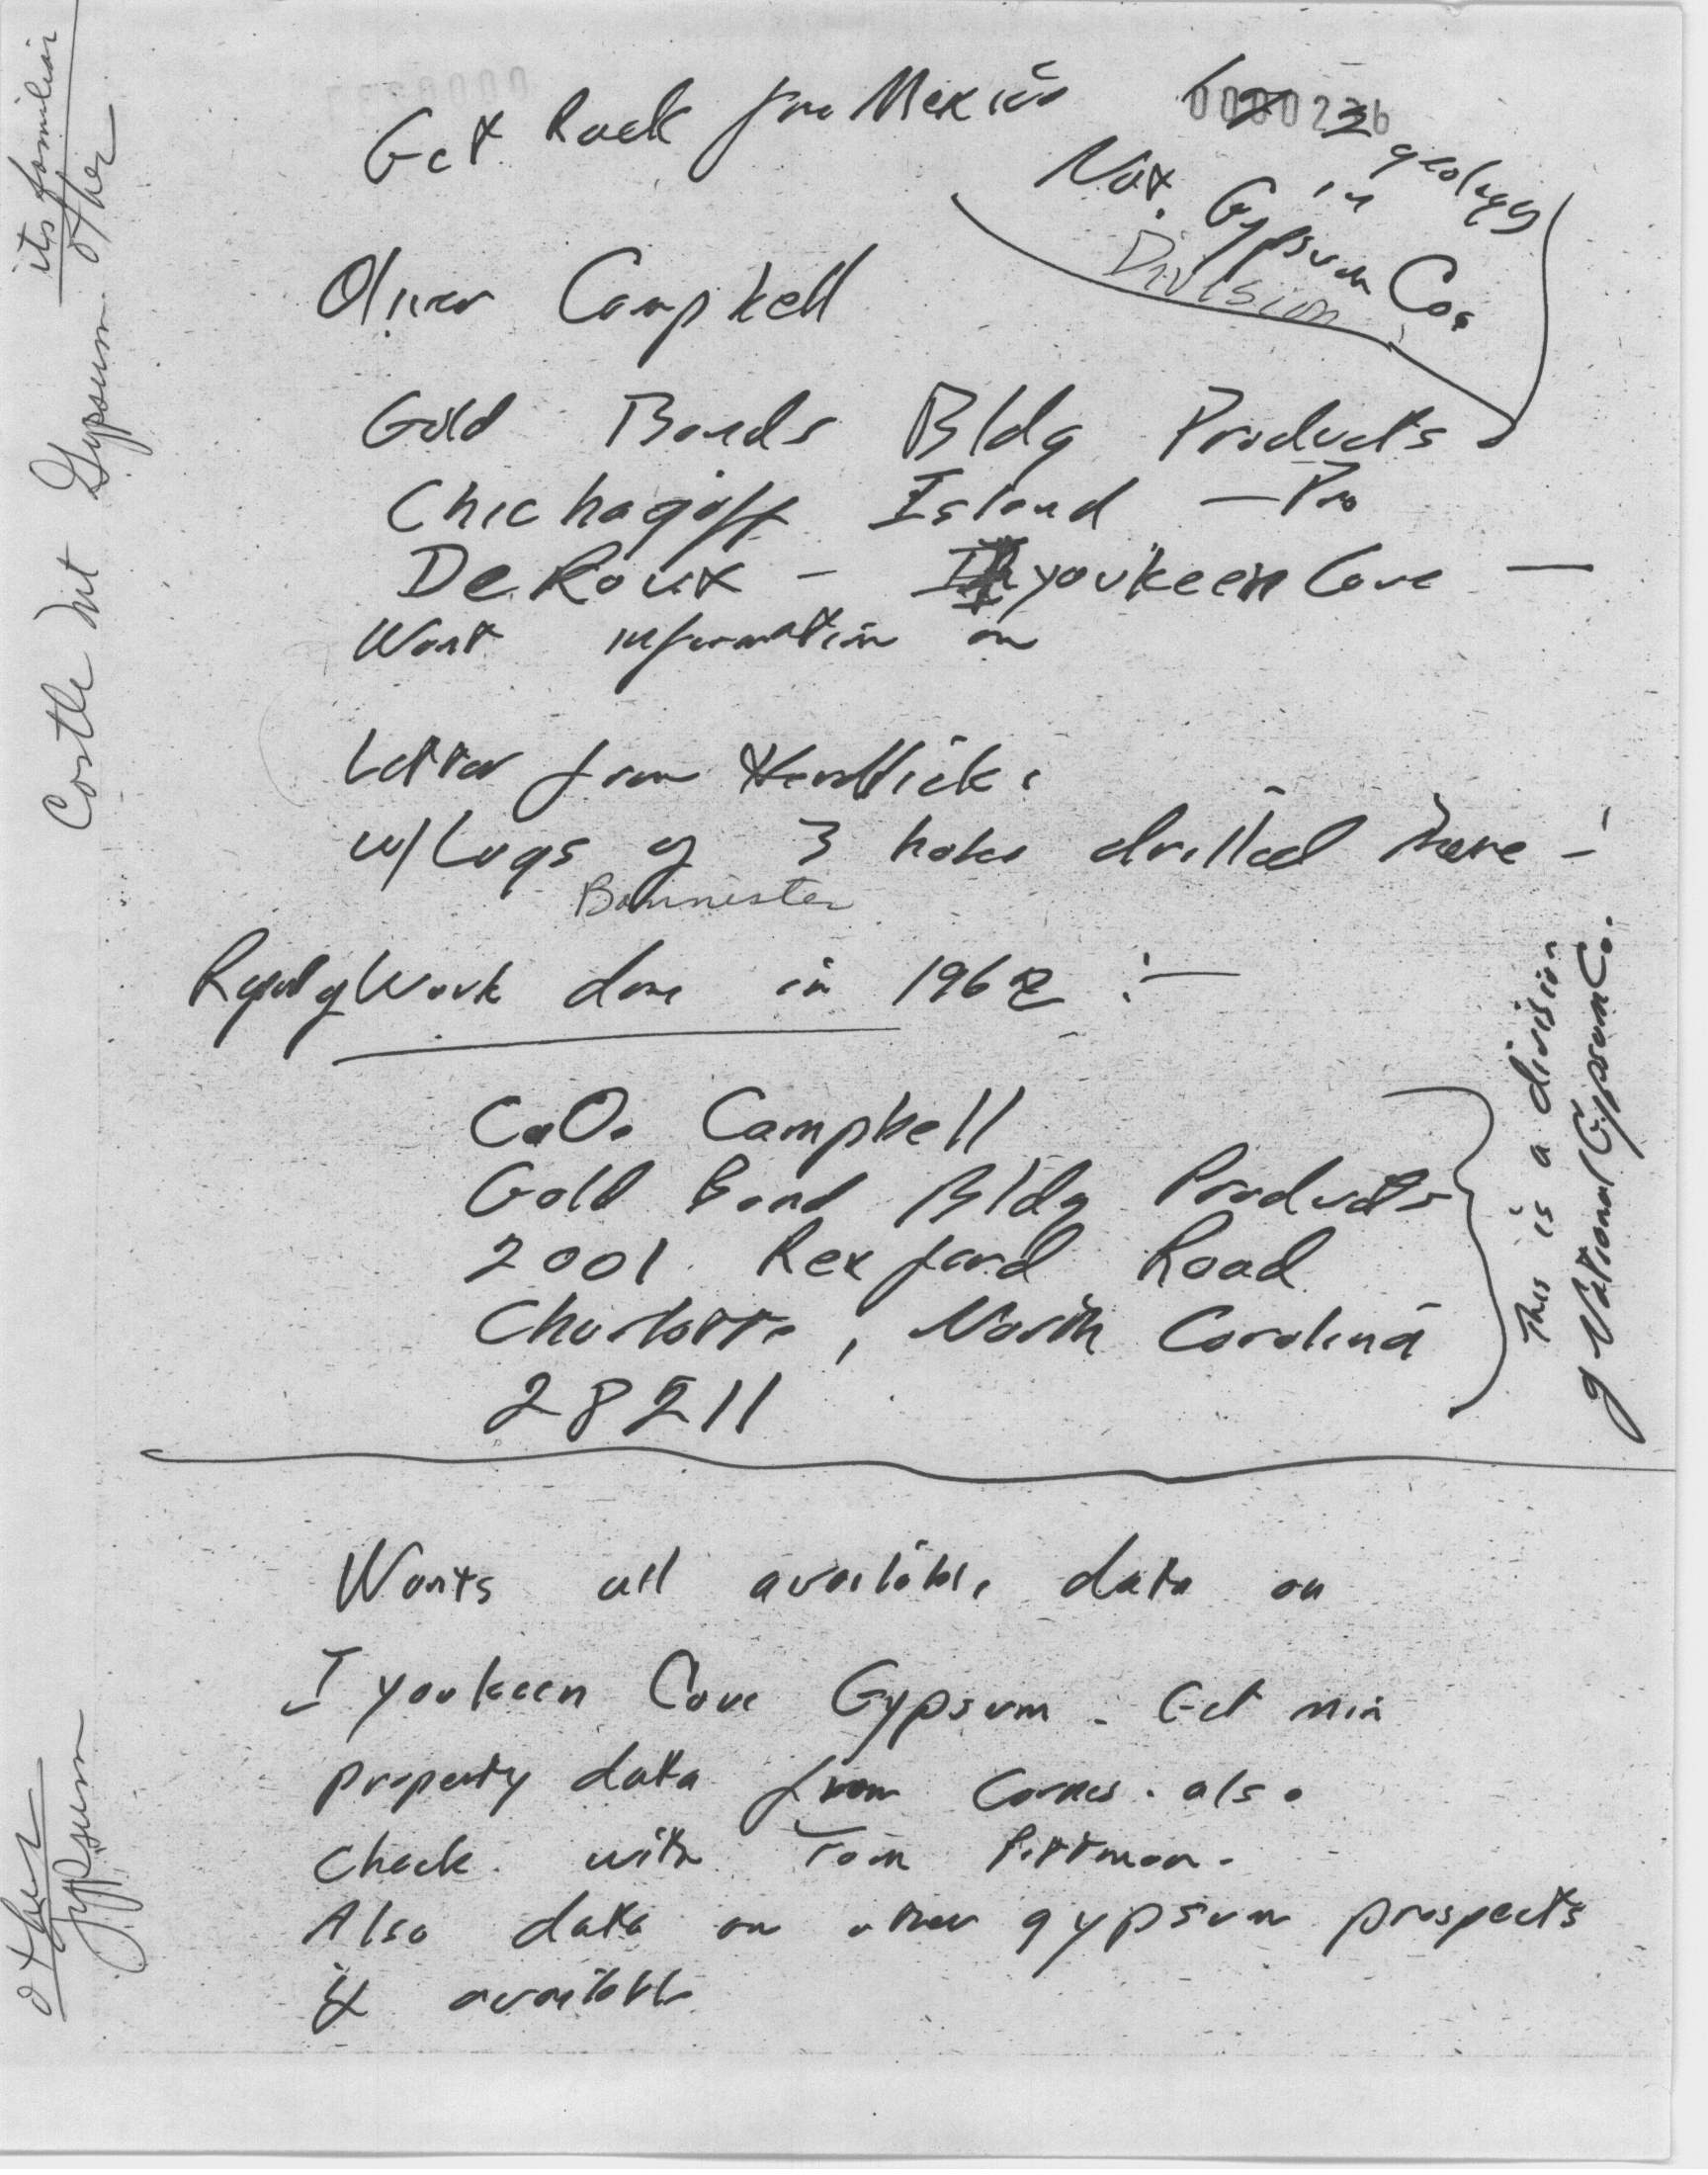 Get Rock from Mexico
0000236
geology
in
Nat. Gypsum Co.
Division
Oliver Campbell
Gold Bonds Bldg Products
Chichagoff Island — Pro
DeRoux - Iyoukeen Cove —
Want information on
Letter from
w/Logs of 3 holes drilled there —
Bannister
Work done in 1962 :—
C.O. Campbell
Gold Bond Bldg Products
2001 Rexford Road
Charlotte, North Carolina
28211
This is a division
of National Gypsum Co.
Wants all available data on
Iyoukeen Cove Gypsum - Get min
property data from . also
check with Tom Pittman.
Also data on other gypsum prospects
if available
its familiar
other
Castle Mt Gypsum
other
gypsum